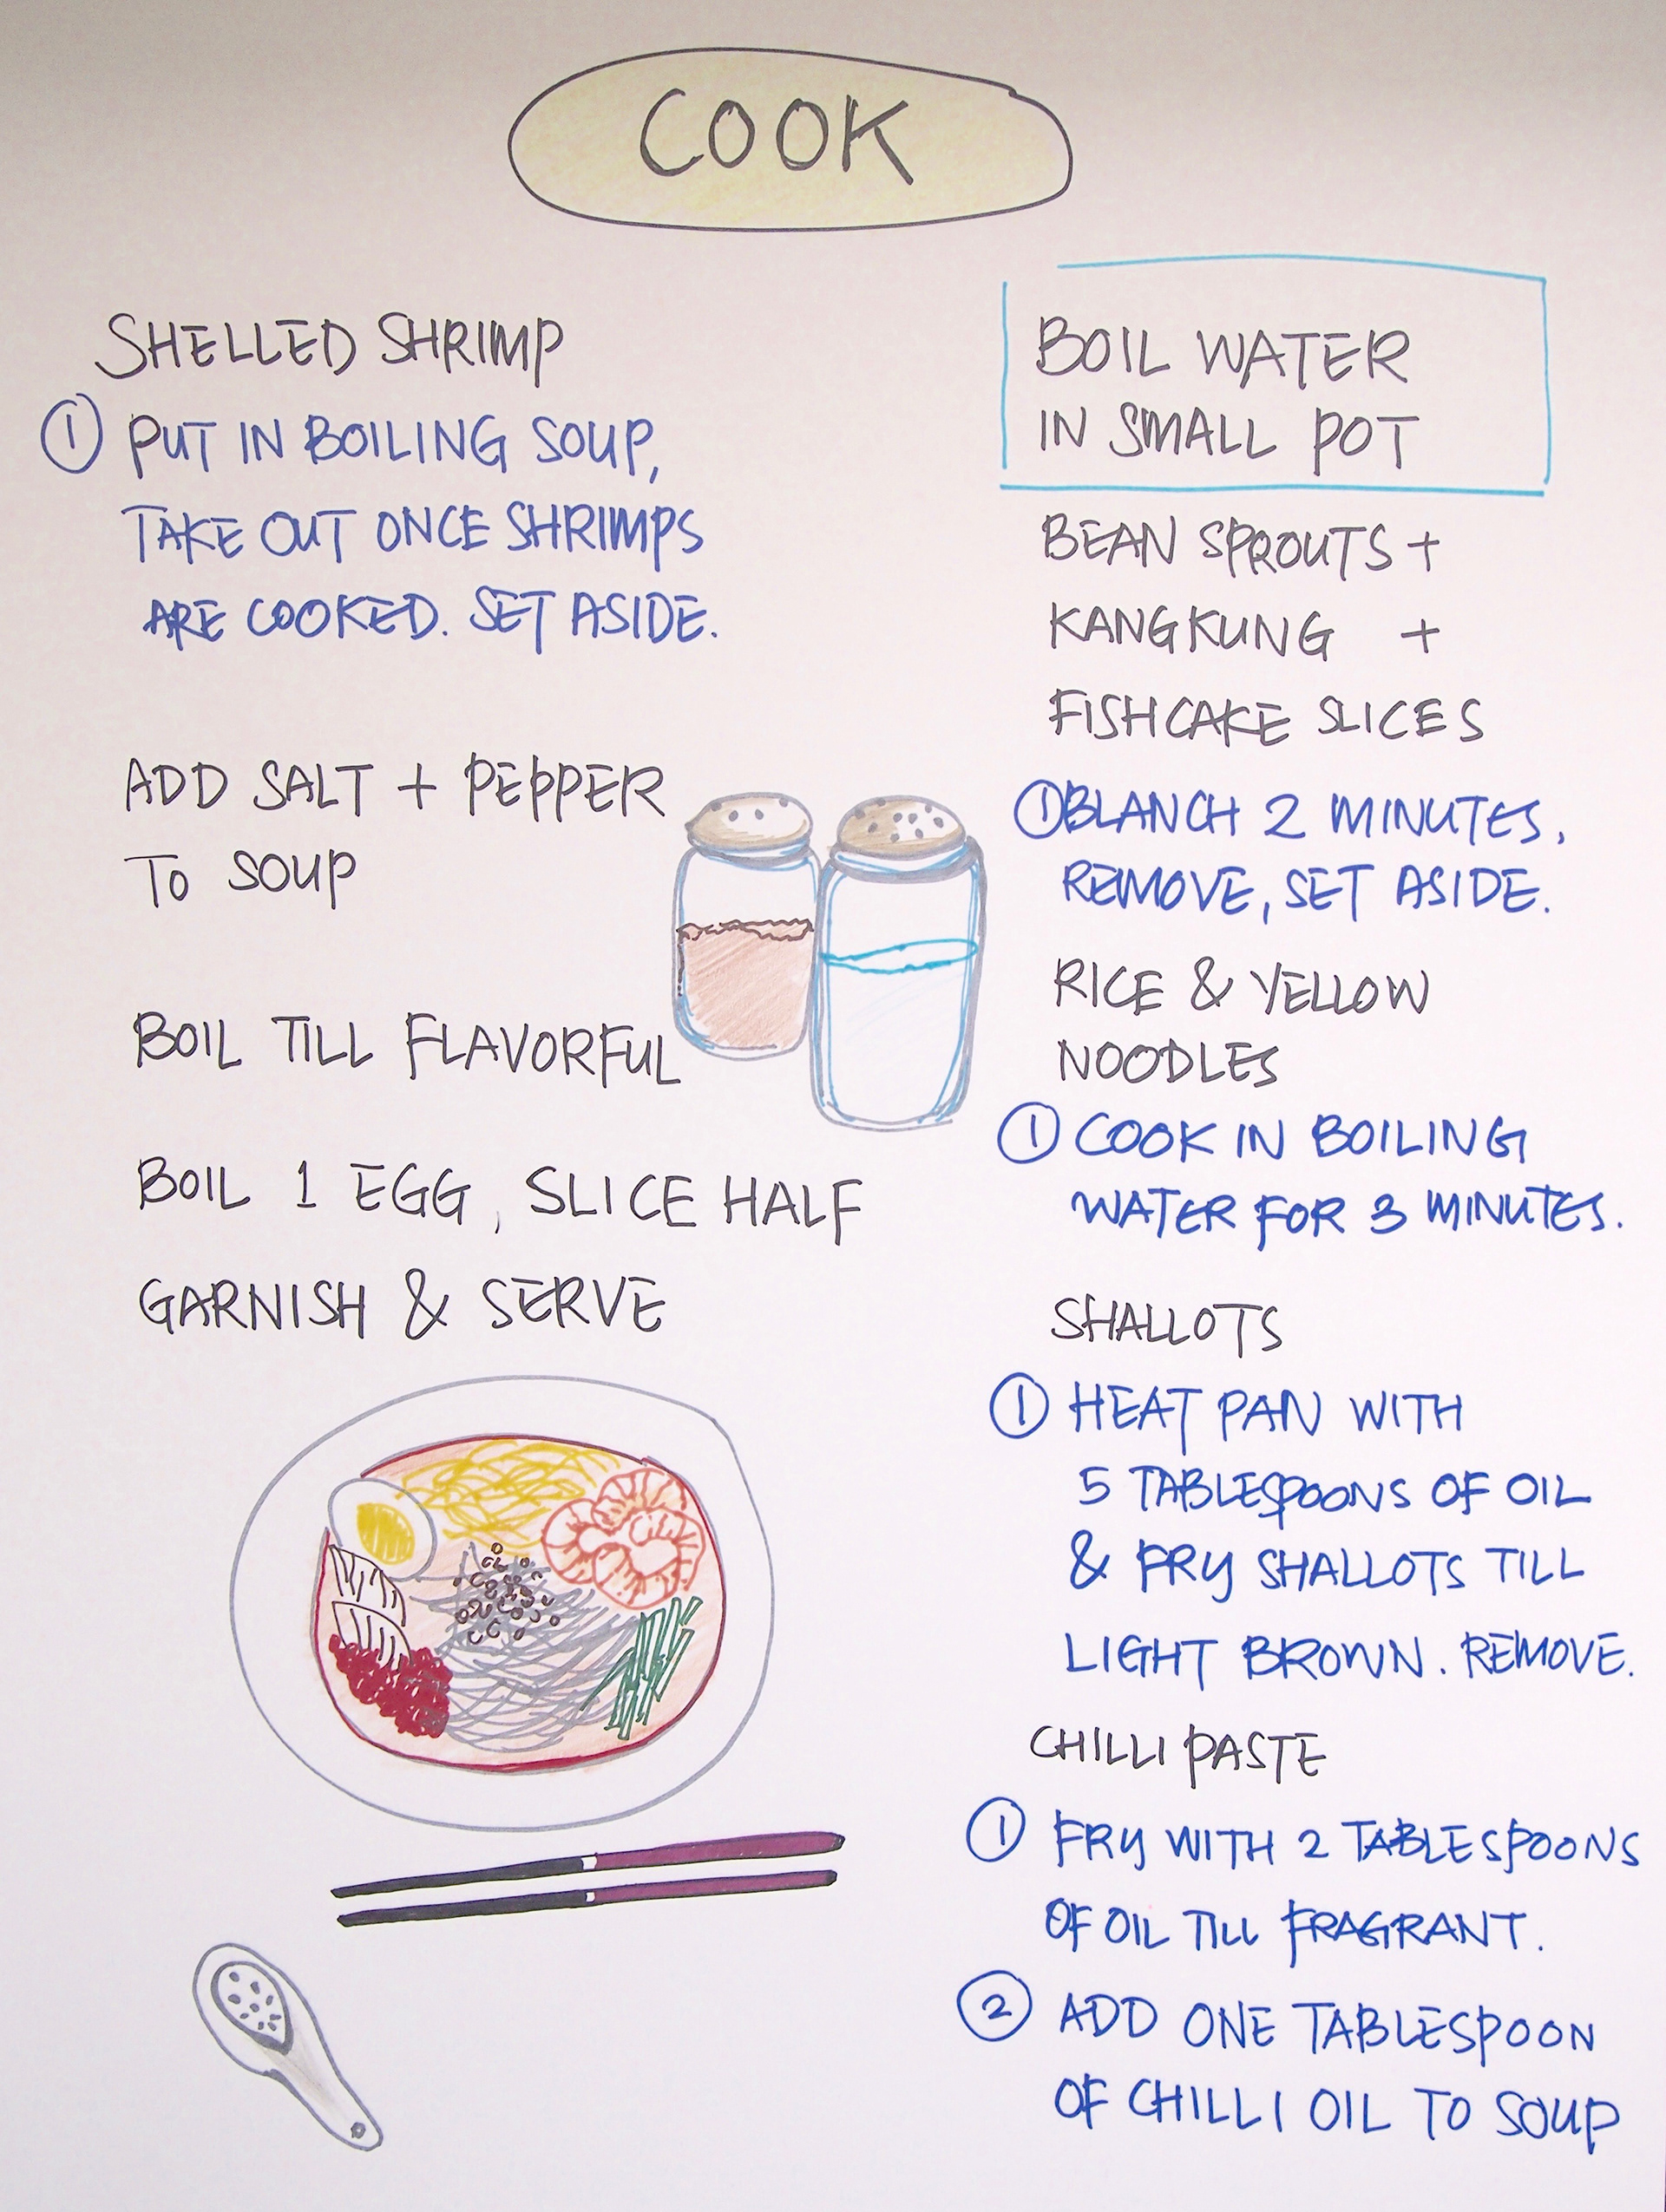 COOK
SHELLED SHRIMP
① PUT IN BOILING SOUP,
TAKE OUT ONCE SHRIMPS
ARE COOKED. SET ASIDE.
ADD SALT + PEPPER
TO SOUP
BOIL TILL FLAVORFUL
BOIL 1 EGG, SLICE HALF
GARNISH & SERVE
BOIL WATER
IN SMALL POT
BEAN SPROUTS +
KANGKUNG +
FISHCAKE SLICES
① BLANCH 2 MINUTES,
REMOVE, SET ASIDE.
RICE & YELLOW
NOODLES
① COOK IN BOILING
WATER FOR 3 MINUTES.
SHALLOTS
① HEAT PAN WITH
5 TABLESPOONS OF OIL
& FRY SHALLOTS TILL
LIGHT BROWN. REMOVE.
CHILLI PASTE
① FRY WITH 2 TABLESPOONS
OF OIL TILL FRAGRANT.
② ADD ONE TABLESPOON
OF CHILLI OIL TO SOUP